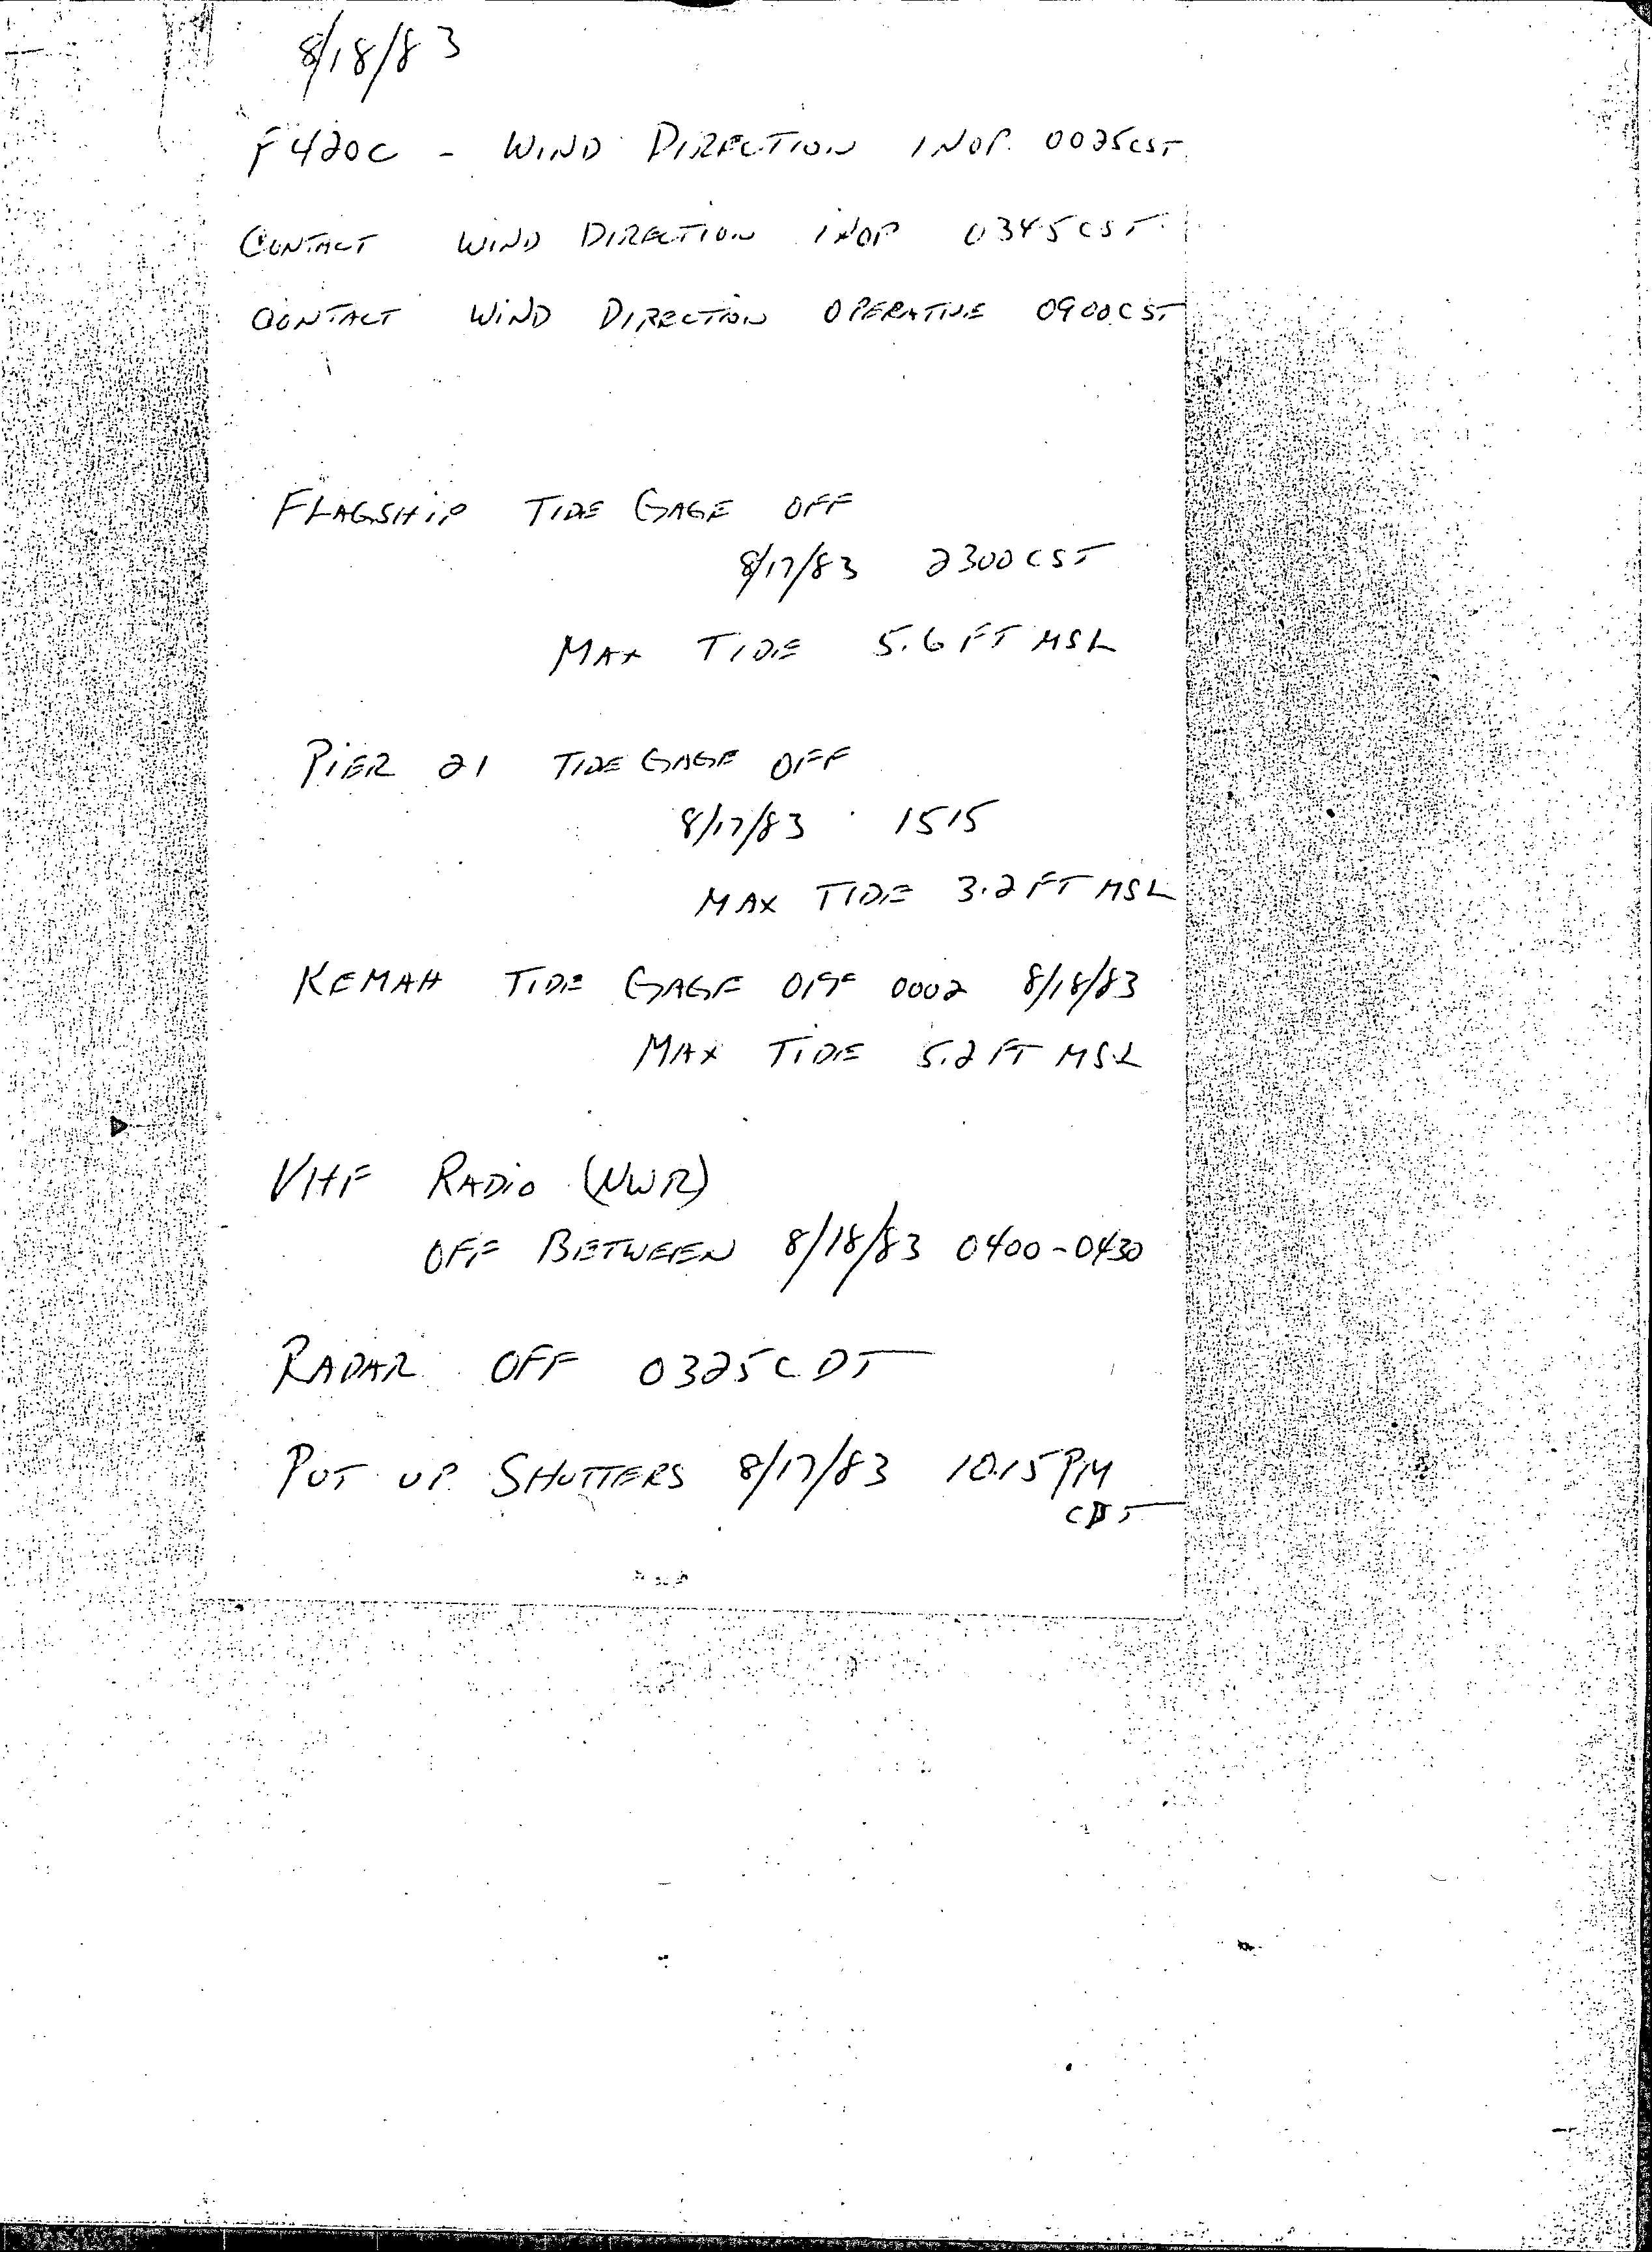 8/18/83
F420C - WIND DIRECTION INOP. 0025CST
CONTACT WIND DIRECTION INOP 0345CST
CONTACT WIND DIRECTION OPERATIVE 0900CST
FLAGSHIP TIDE GAGE OFF
8/17/83 2300CST
MAX TIDE 5.6 FT MSL
PIER 21 TIDE GAGE OFF
8/17/83 1515
MAX TIDE 3.2 FT MSL
KEMAH TIDE GAGE OFF 0002 8/18/83
MAX TIDE 5.2 FT MSL
VHF RADIO (NWR)
OFF BETWEEN 8/18/83 0400-0430
RADAR OFF 0325CDT
PUT UP SHUTTERS 8/17/83 10.15PM
CDT